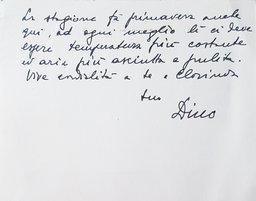 La stagione fà primavera anche
qui, ad ogni meglio lì ci deve
essere temperatura più costante
e aria più asciutta e pulita.
Vive cordialità a te e Clorinda
tuo
Dino